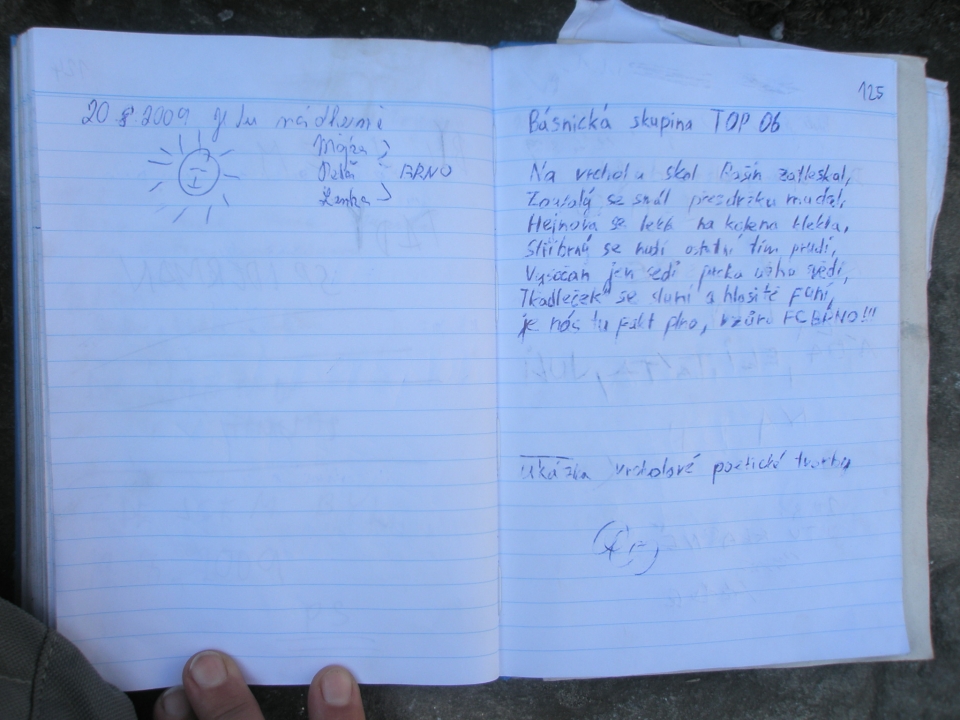 20 8 2009 Je tu nádherně
Petr
BRNO
Lenka
125
Básnická skupina TOP 06
Na vrcholu skal Rašín zatleskal,
Zouvolý se smál přezdržku mudal,
Hejnová se lekla na kolena klekla,
Stříbrný se nudí ostatní tím prudí,
Vysočan jen sedí
Tkadleček se sluní a hlasitě funí,
je nás tu fakt plno, vzůru FC BRNO!!!
Ukázka vrcholové poetické tvorby